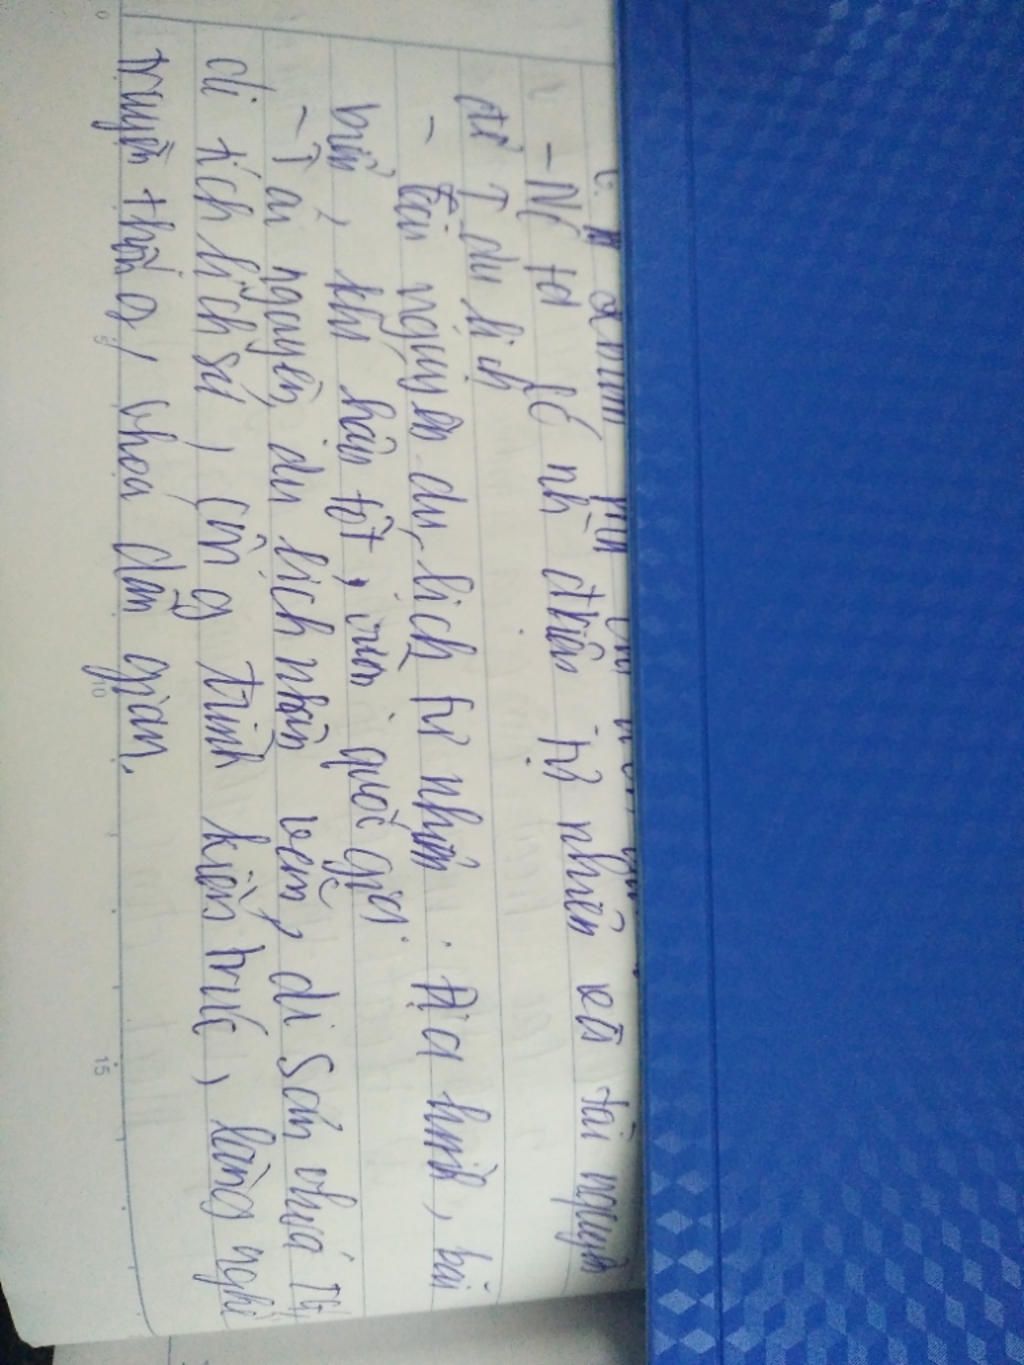 - Nc ta có nh đkiện tự nhiên và tài nguyên
để T du lịch
- Tài nguyên du lịch tự nhiên: Địa hình, bãi
biển, khí hậu tốt, vườn quốc gia.
- Tài nguyên du lịch nhân văn, di sản vhoá TG
di tích lịch sử, công trình kiến trúc, làng nghề
truyền thống, vhoá dân gian.